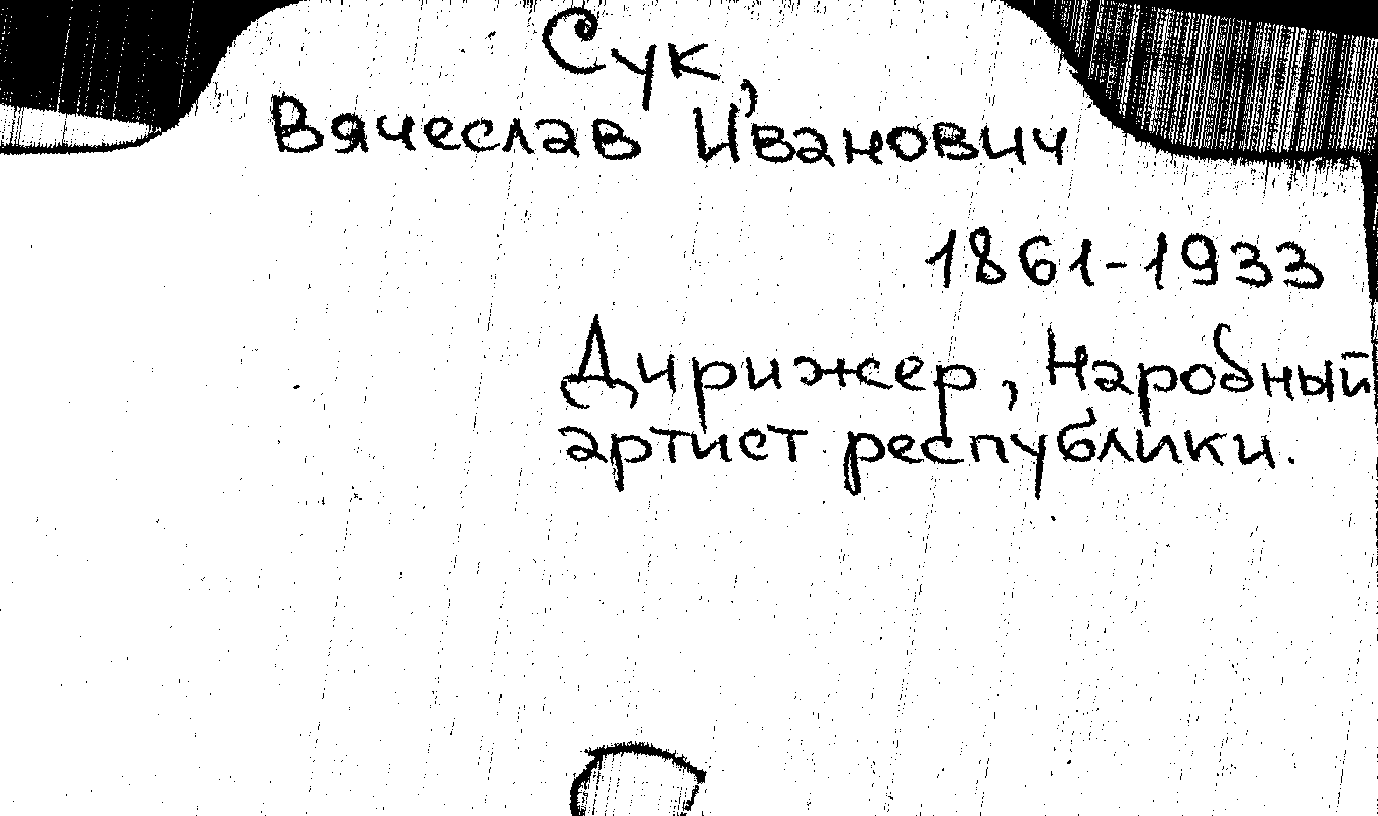 Сук,
Вячеслав Иванович
1861-1933
Дирижер, Народный
артист республики.